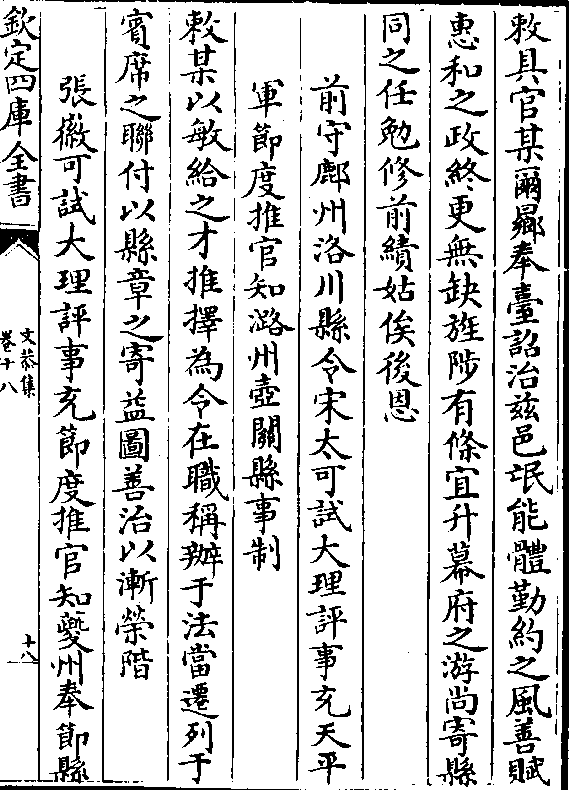 敕具官某爾曏奉臺詔治兹邑氓能體勤約之風善賦
惠和之政終更無缺旌陟有條宜升幕府之游尚寄縣
同之任勉修前績姑俟後恩
前守鄜州洛川縣令宋太可試大理評事充天平
軍節度推官知潞州壺關縣事制
敕某以敏給之才推擇為令在職稱辦于法當遷列于
賓席之聯付以縣章之寄益圖善治以漸榮階
張徽可試大理評事充節度推官知夔州奉節縣
欽定四庫全書
文恭集
卷十八
十八